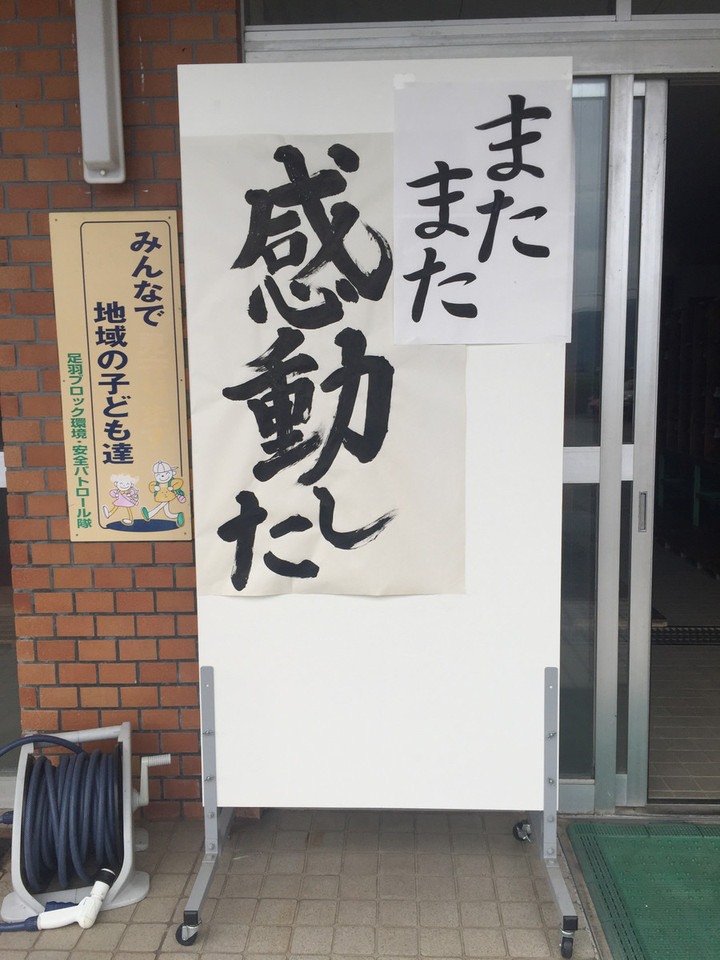 また
また
感動し
た
みんなで
地域の子ども達
足羽ブロック環境・安全パトロール隊